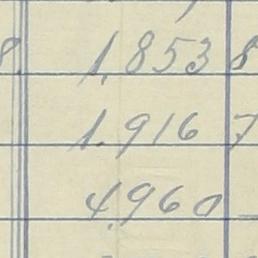 8. 1,853 8
1.916 7
4,960